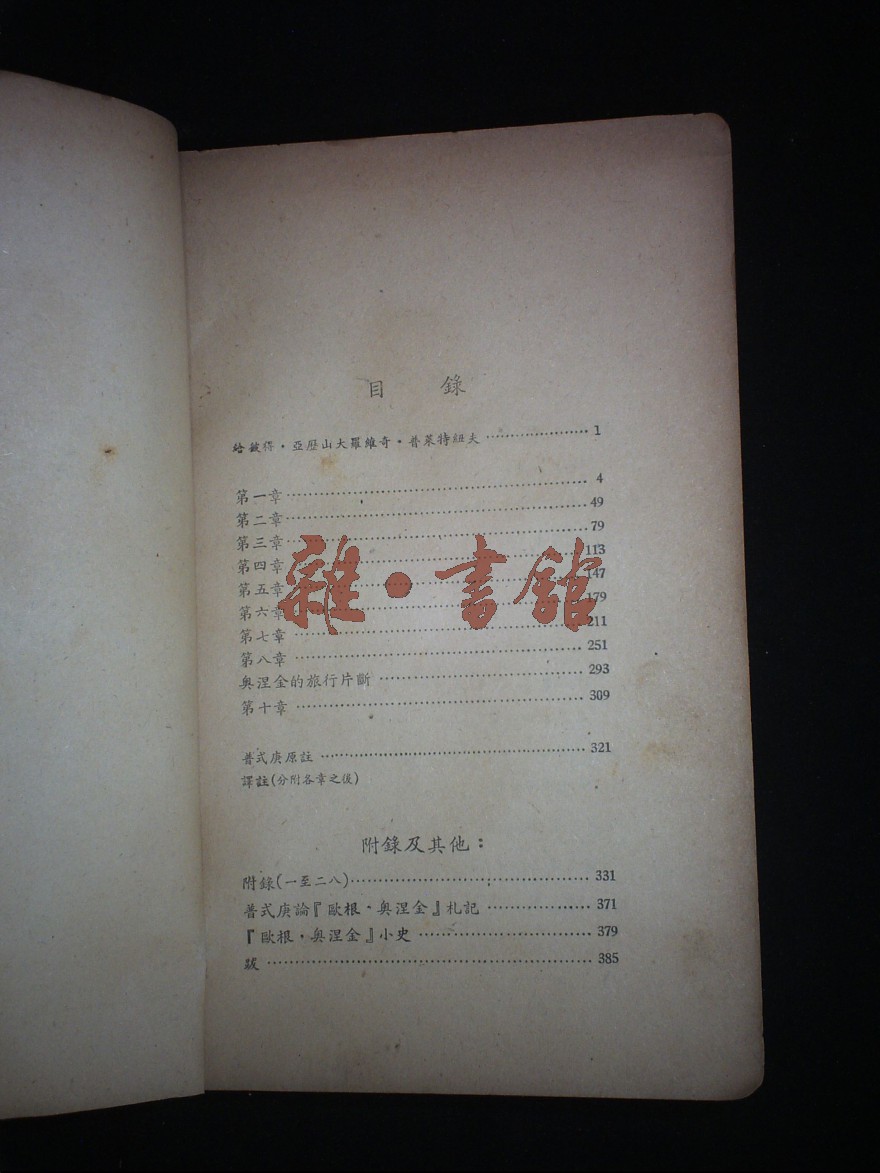 目 錄
給彼得·亞歷山大羅維奇·普萊特紐夫 1
第一章 4
第二章 49
第三章 79
第四章 113
第五章 147
第六章 179
第七章 211
第八章 251
奧涅金的旅行片斷 293
第十章 309
普式庚原註 321
譯註(分附各章之後)
附錄及其他：
附錄(一至二八) 331
普式庚論『歐根·奧涅金』札記 371
『歐根·奧涅金』小史 379
跋 385
雜·書館